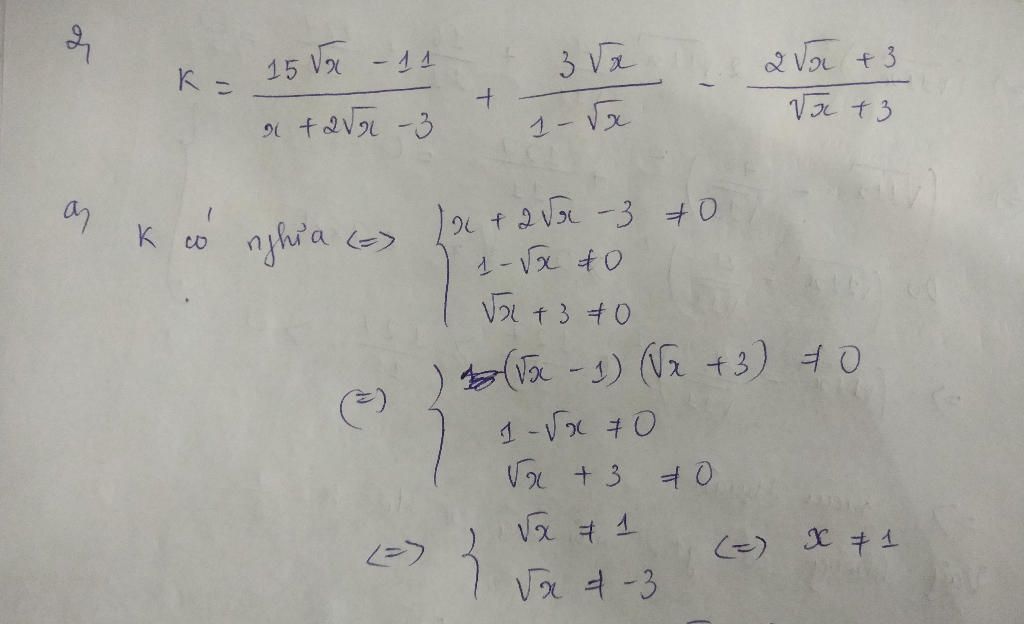 2, K = \frac{15\sqrt{x} - 11}{x + 2\sqrt{x} - 3} + \frac{3\sqrt{x}}{1 - \sqrt{x}} - \frac{2\sqrt{x} + 3}{\sqrt{x} + 3}
a, K có nghĩa <=> { x + 2√x - 3 ≠ 0
1 - √x ≠ 0
√x + 3 ≠ 0
(=) { (√x - 1) (√x + 3) ≠ 0
1 - √x ≠ 0
√x + 3 ≠ 0
<=> { √x ≠ 1 (=) x ≠ 1
√x ≠ -3